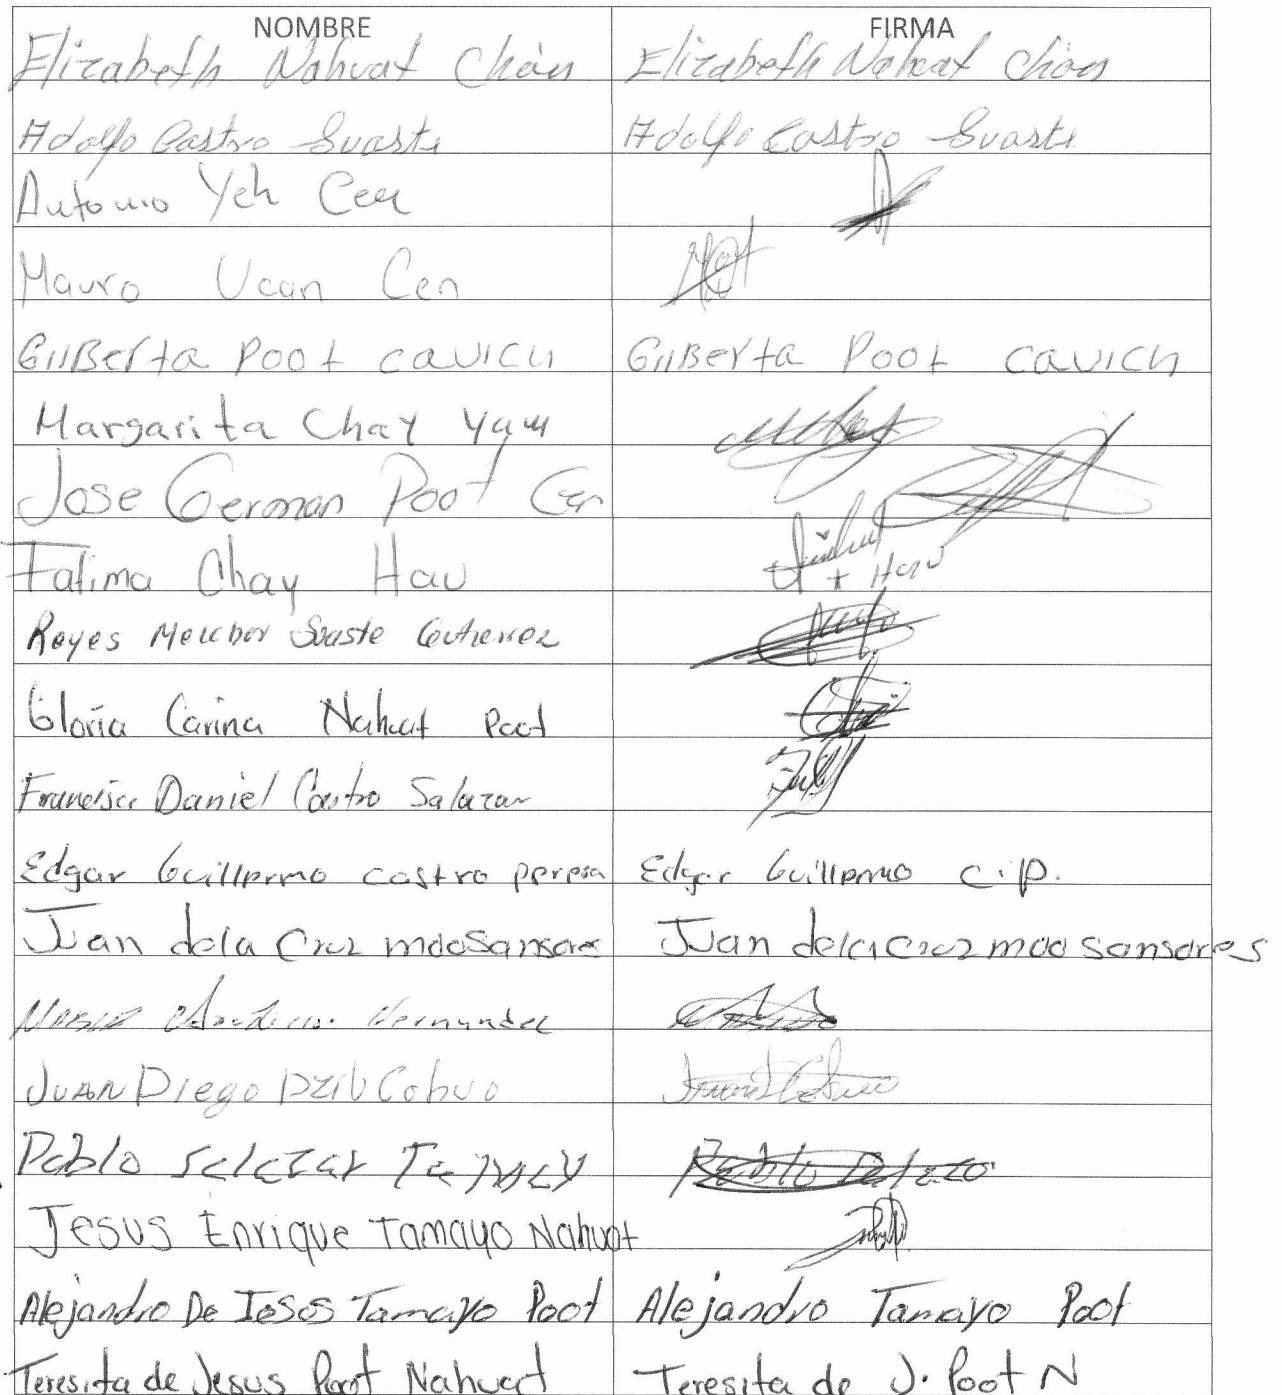 NOMBRE FIRMA
Elizabeth Nahuat Chan Elizabeth Nahuat Chan
Adolfo Castro Suaste Adolfo Castro Suaste
Antonio Yeh Cen
Mauro Ucan Cen
GilBerta Poot cauich GilBerta Poot cauich
Margarita Chay Yam
Jose German Poot Cen
Fatima Chay Hau
Reyes Melchor Suaste Gutierrez
Gloria Carina Nahuat Poot
Francisco Daniel Castro Salazar
Edgar Guillermo castro perera Edgar Guillermo c.p.
Juan dela Cruz moo Sansores Juan dela Cruz moo sansores
Hernandez
JUAN Diego Dzib Cobuo
Pablo Salazar
Jesus Enrique Tamayo Nahuat
Alejandro De Jesos Tamayo Poot Alejandro Tamayo Poot
Teresita de Jesus Poot Nahuat Teresita de J. Poot N